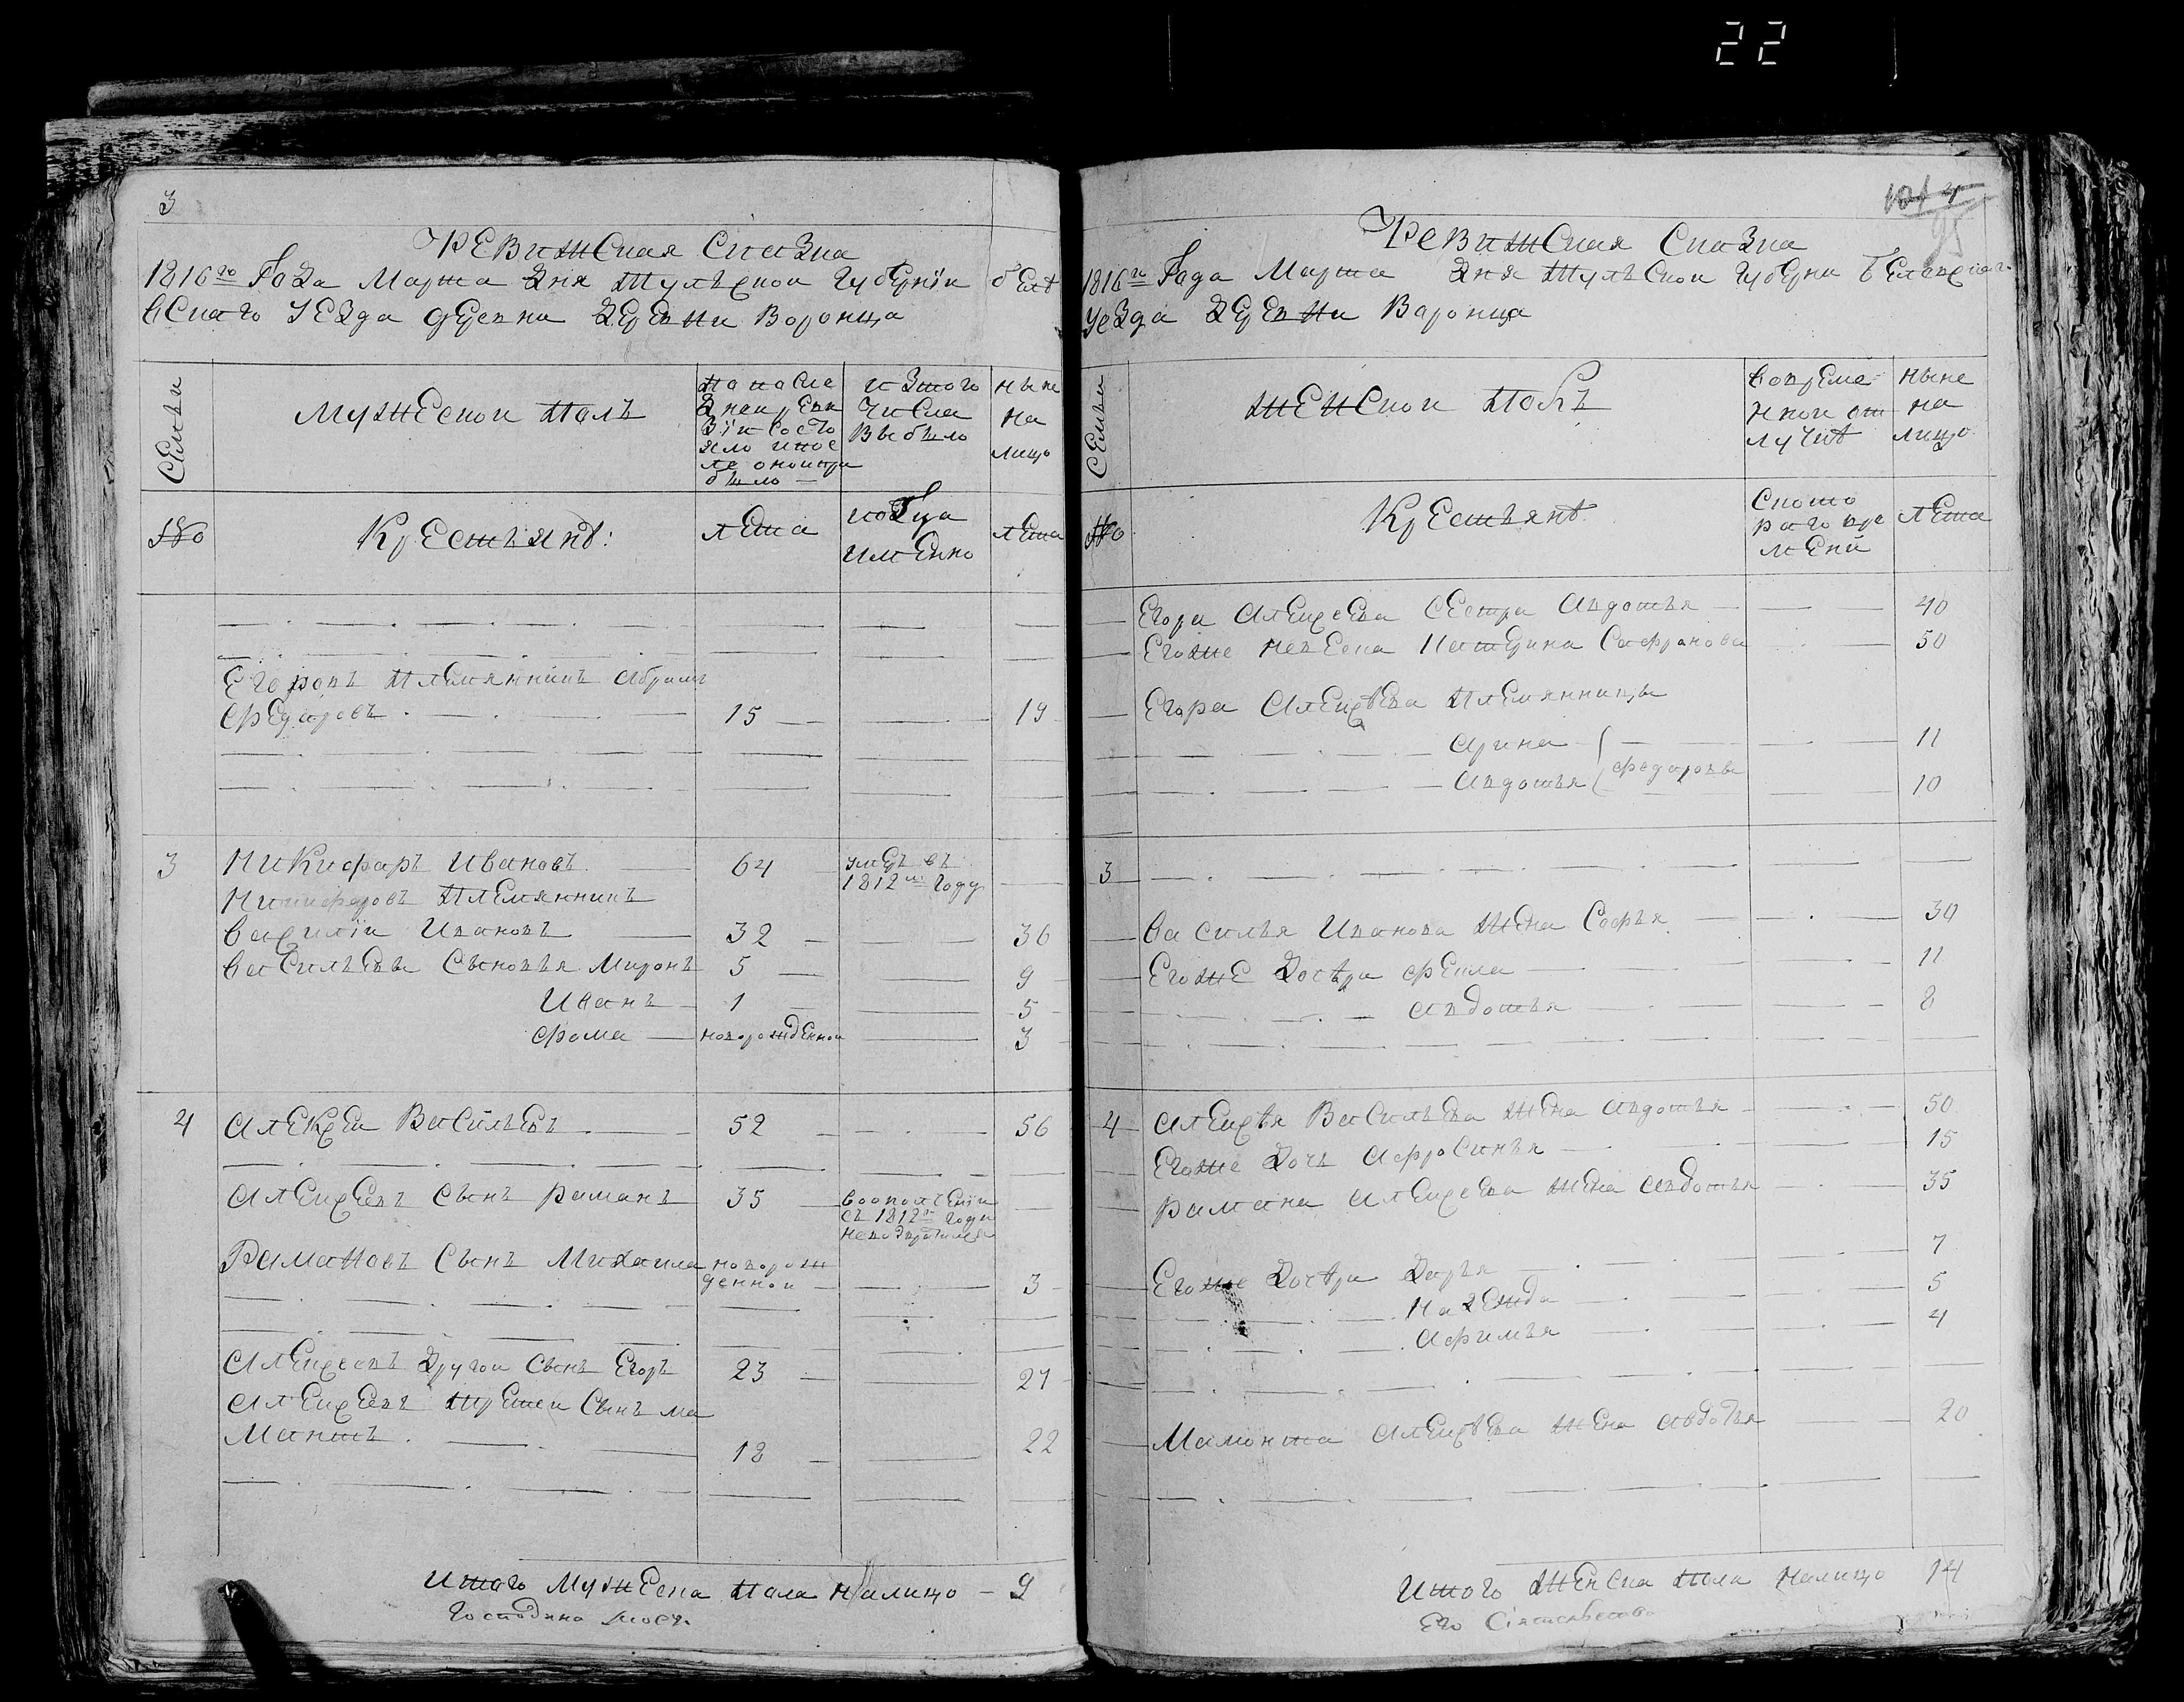 22
3
Ревижская Сказка
1816го Года Марта Дня Тульскои Губернїи белѣ
вскаго Уезда дѣревни Деревни Воронца
Семьи
Мужескои Полъ
По после
Днеи реви
Зїи состо
яло и после
было
изтого
Числа
Выбыло
ныне
на
лицо
№
Крестьянѣ:
лета
когда
имѣнно
лета
Егоровъ племянникъ Абрамъ
Федаровъ
15
19
3
Никифаръ Ивановъ
64
умеръ въ
1812м Году
Никифаровъ племянникъ
Василїи Ивановъ
32
36
Васильевы Сыновья Миронъ
5
9
Иванъ
1
5
Фома
новорожденнои
3
4
Алексеи Васильевъ
52
56
Алексеевъ Сынъ Раманъ
35
вополчении
съ 1812го Года
Рамановъ Сынъ Михаила
новорож
деннои
3
Алексеевъ Другои Сынъ Егоръ
23
27
Алексеевъ третеи Сынъ Ма
Мантъ
18
22
Итого мужеска пала налицо 9
Господина моего
Ревижская Сказка
1816го Года Марта Дня Тульскои Губерни белевскаго
Уезда Деревни Варонца
Семьи
Женскои полъ
вовреме
ннои от
лучкѣ
ныне
на
лицо
№
Крестьянѣ
Ското
раго вре
мени
лета
Егора Алексеева Сестра Авдотья
40
Егоже невеска Катерина Сафранова
50
Егора Алексѣева племянницы
Арина
11
Авдотья
федаровы
10
3
Василья Иванова жена Софья
30
Егоже Дочѣри фекла
11
авдотья
8
4
Алексѣя Васильева жена авдотья
50
Егоже Дочь Афросинья
15
Рамана Алексеева жена авдотья
35
Егоже Дочѣри Дарья
7
Надежда
5
Афимья
4
Мамонта Алексѣева жена авдотья
20
Итого женска пола налицо 14
Его Сіятельства